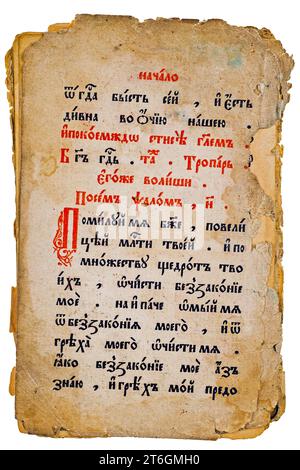 начало
ѿ гд҃а бысть сей , и҆ є҆сть
дивна во ѻ҆чїю нашею .
и҆ по коемждо стисѣ гл҃ем .
Бг҃ъ гд҃ь . та . Тропарь .
Егоже волиши .
Посем ѱалом , н҃ .
Помилуй мѧ бж҃е , по вели
цѣй млⷭ҇ти твоей . и҆ по
множеству щедротъ тво
ихъ , ѡ҆чисти беззаконїе
мое . наипаче ѡ҆мый мѧ
ѿ беззаконїѧ моего , и҆ ѿ
грѣха моего ѡ҆чисти мѧ .
ꙗко беззаконїе мое азъ
знаю , и҆ грѣхъ мой предо
alamy - 2T6GMH0